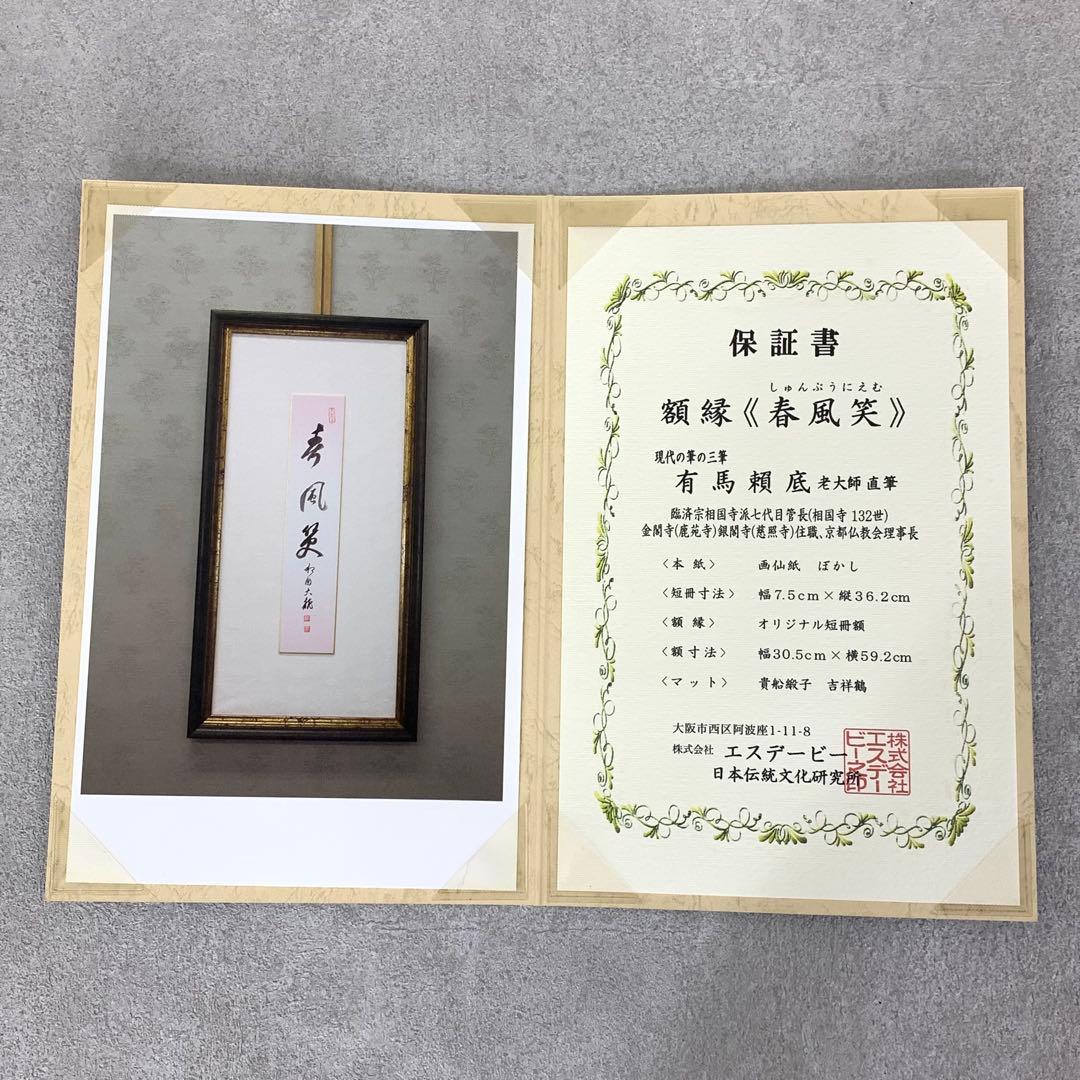 春風笑
保証書
しゅんぷうにえむ
額縁《春風笑》
現代の筆の三筆
有馬賴底 老大師 直筆
臨済宗相国寺派七代目管長(相国寺 132世)
金閣寺(鹿苑寺)銀閣寺(慈照寺)住職、京都仏教会理事長
〈本紙〉 画仙紙 ぼかし
〈短冊寸法〉 幅7.5cm×縦36.2cm
〈額縁〉 オリジナル短冊額
〈額寸法〉 幅30.5cm×横59.2cm
〈マット〉 貴船緞子 吉祥鶴
大阪市西区阿波座1-11-8
株式会社 エスデービー
日本伝統文化研究所
株式会社
エスデー
ビー之印